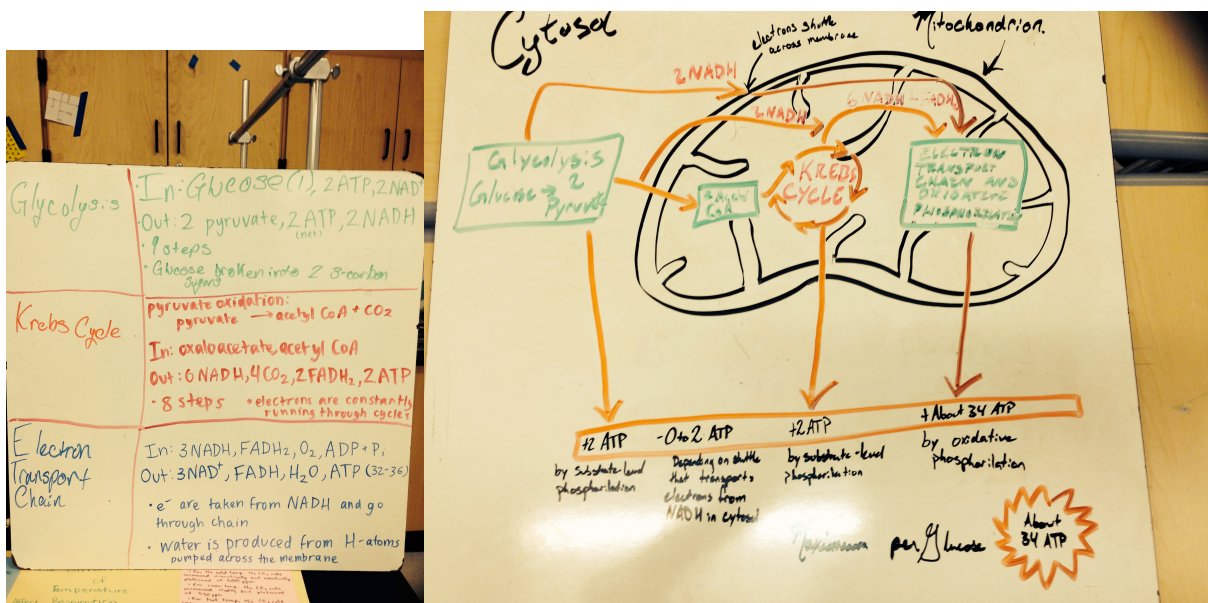 Glycolysis
• In: Glucose(1), 2ATP, 2NAD+
• Out: 2 pyruvate, 2ATP, 2NADH
(net)
• 9 steps
• Glucose broken into 2 3-carbon
sugars
Krebs Cycle
pyruvate oxidation:
pyruvate → acetyl CoA + CO2
In: oxaloacetate, acetyl CoA
Out: 6NADH, 4CO2, 2FADH2, 2ATP
• 8 steps • electrons are constantly
running through cycles
Electron
Transport
Chain
In: 3NADH, FADH2, O2, ADP + Pi
Out: 3NAD+, FADH, H2O, ATP (32-36)
• e- are taken from NADH and go
through chain
• water is produced from H-atoms
pumped across the membrane
of
Temperature
Cytosol
electrons shuttle
across membrane
Mitochondrion.
2 NADH
2 NADH
6 NADH
Glycolysis
Glucose → 2
Pyruvate
CoA
KREBS
CYCLE
ELECTRON
TRANSPORT
CHAIN AND
OXIDATIVE
+2 ATP
by substrate-level
phospharilation
-0 to 2 ATP
Depending on shuttle
that transports
electrons from
NADH in cytosol
+2ATP
by substrate-level
phospharilation
+ About 34 ATP
by oxidative
phospharilation
per Glucose
About
34 ATP